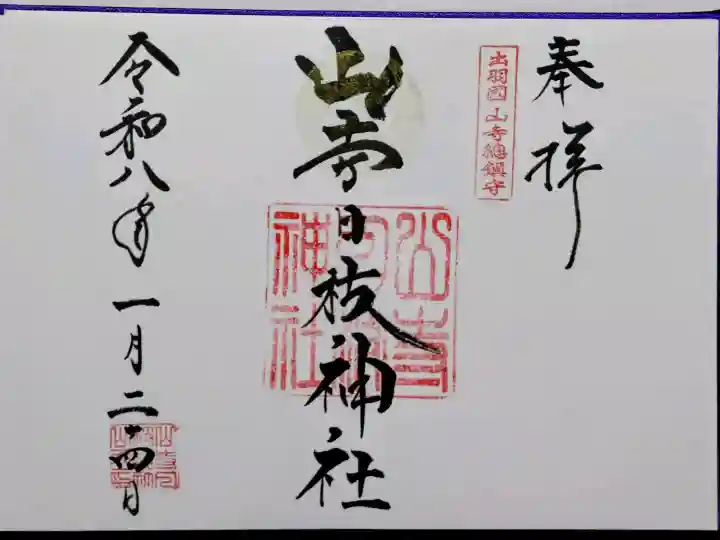 奉拝
出羽國山寺總鎮守
山寺日枝神社
山寺日枝神社
令和八年一月二十四日